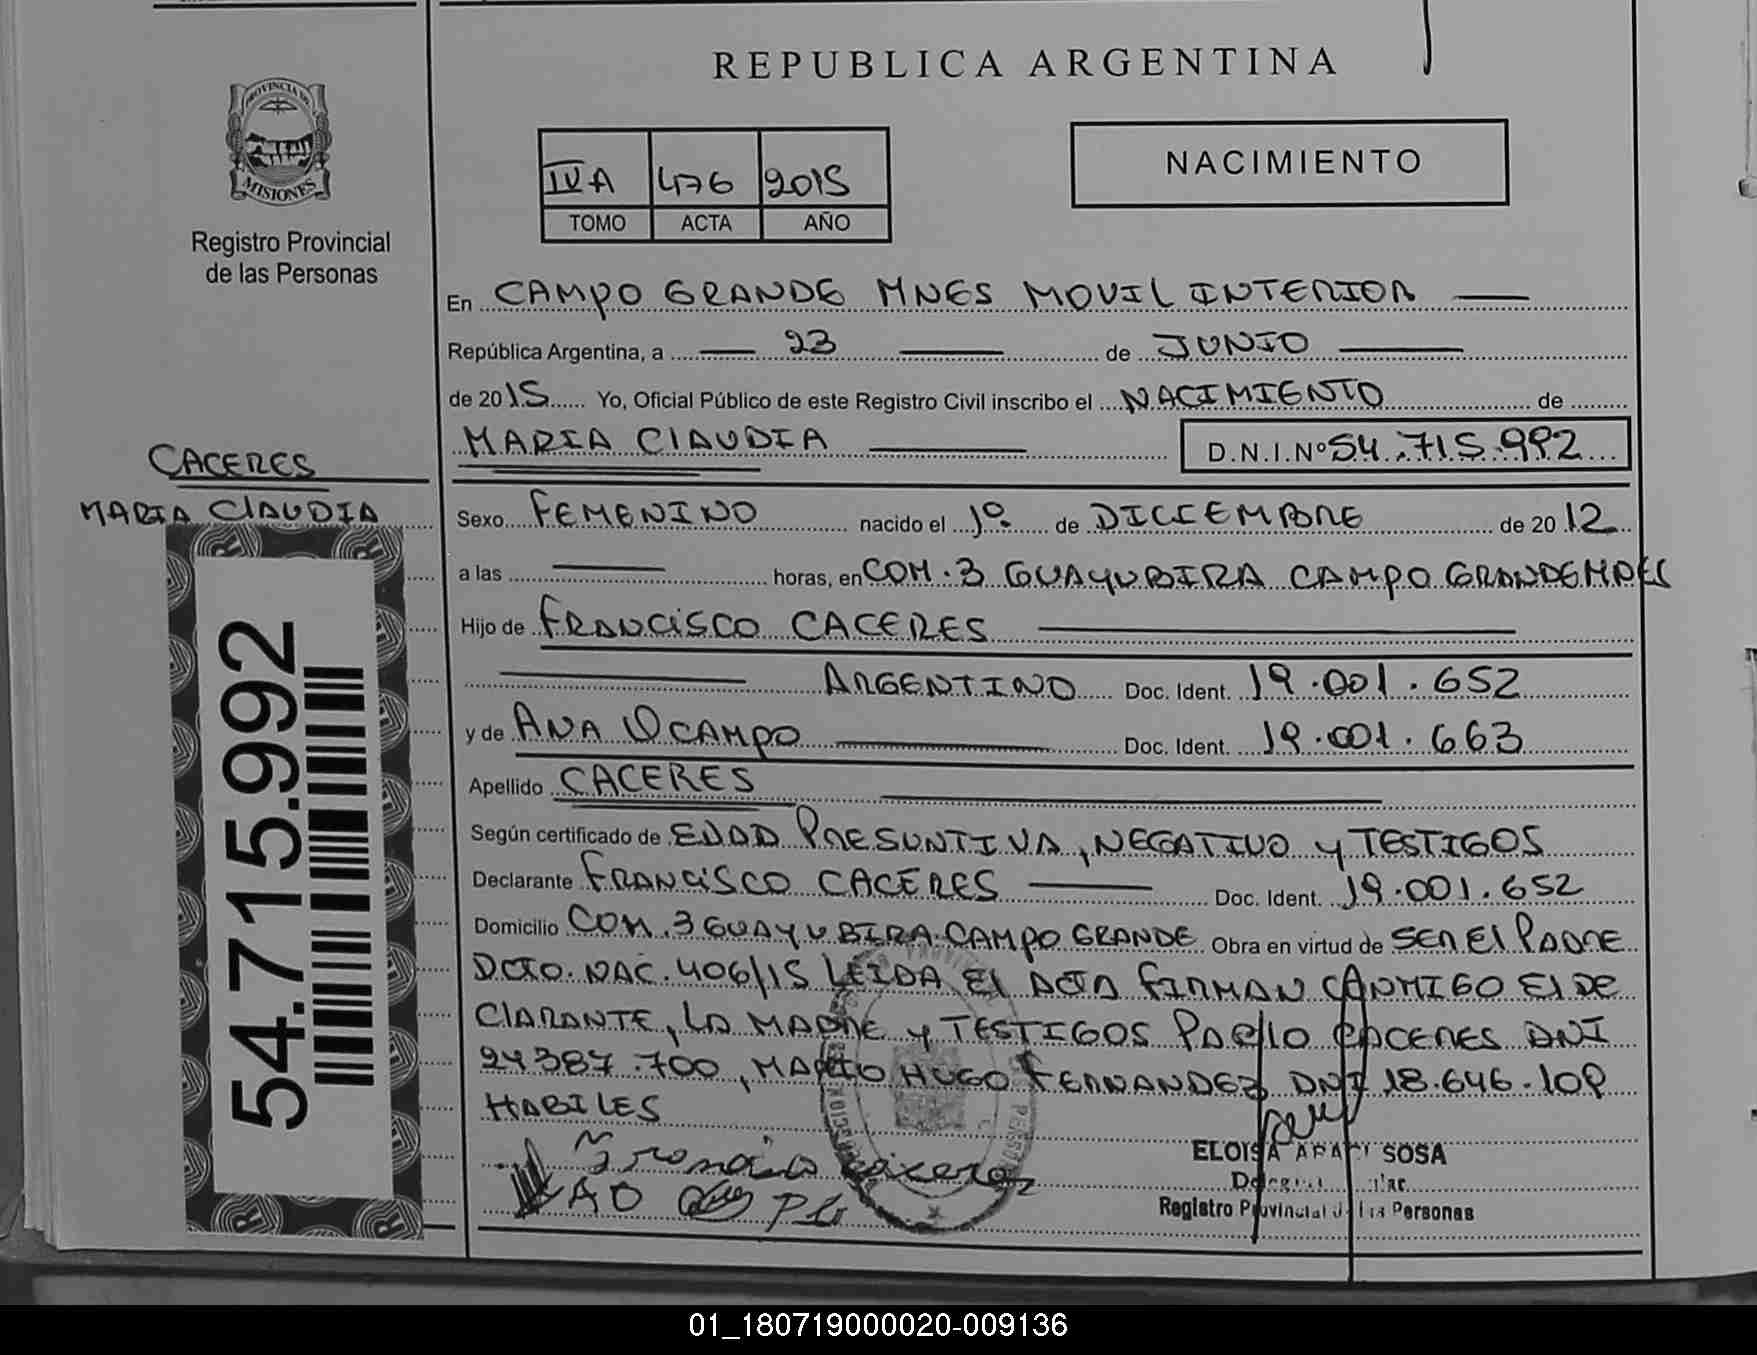 REPUBLICA ARGENTINA
PROVINCIA DE
MISIONES
Registro Provincial
de las Personas
IVA 476 2015
TOMO ACTA AÑO
NACIMIENTO
En CAMPO GRANDE MNES MOVIL INTERIOR
República Argentina, a 23 de JUNIO
de 2015 Yo, Oficial Público de este Registro Civil inscribo el NACIMIENTO de
MARIA CLAUDIA D.N.I.Nº 54.715.992
CACERES
MARIA CLAUDIA
54.715.992
Sexo FEMENINO nacido el 1º de DICIEMBRE de 2012
a las horas, en COM. 3 GUAYUBIRA CAMPO GRANDE MNES
Hijo de FRANCISCO CACERES
ARGENTINO Doc. Ident. 19.001.652
y de ANA OCAMPO Doc. Ident. 19.001.663
Apellido CACERES
Según certificado de EDAD PRESUNTIVA, NEGATIVO y TESTIGOS
Declarante FRANCISCO CACERES Doc. Ident. 19.001.652
Domicilio COM. 3 GUAYUBIRA CAMPO GRANDE Obra en virtud de SER EL PADRE
DCTO. NAC. 406/15 LEIDA EL ACTA FIRMAN CONMIGO EL DE
CLARANTE, LA MADRE y TESTIGOS PABLO CACERES DNI
24387.700, MARIO HUGO FERNANDEZ DNI 18.646.109
HABILES
Francisco caceres
AO
ELOISA ARACI SOSA
Registro Provincial de las Personas
01_180719000020-009136